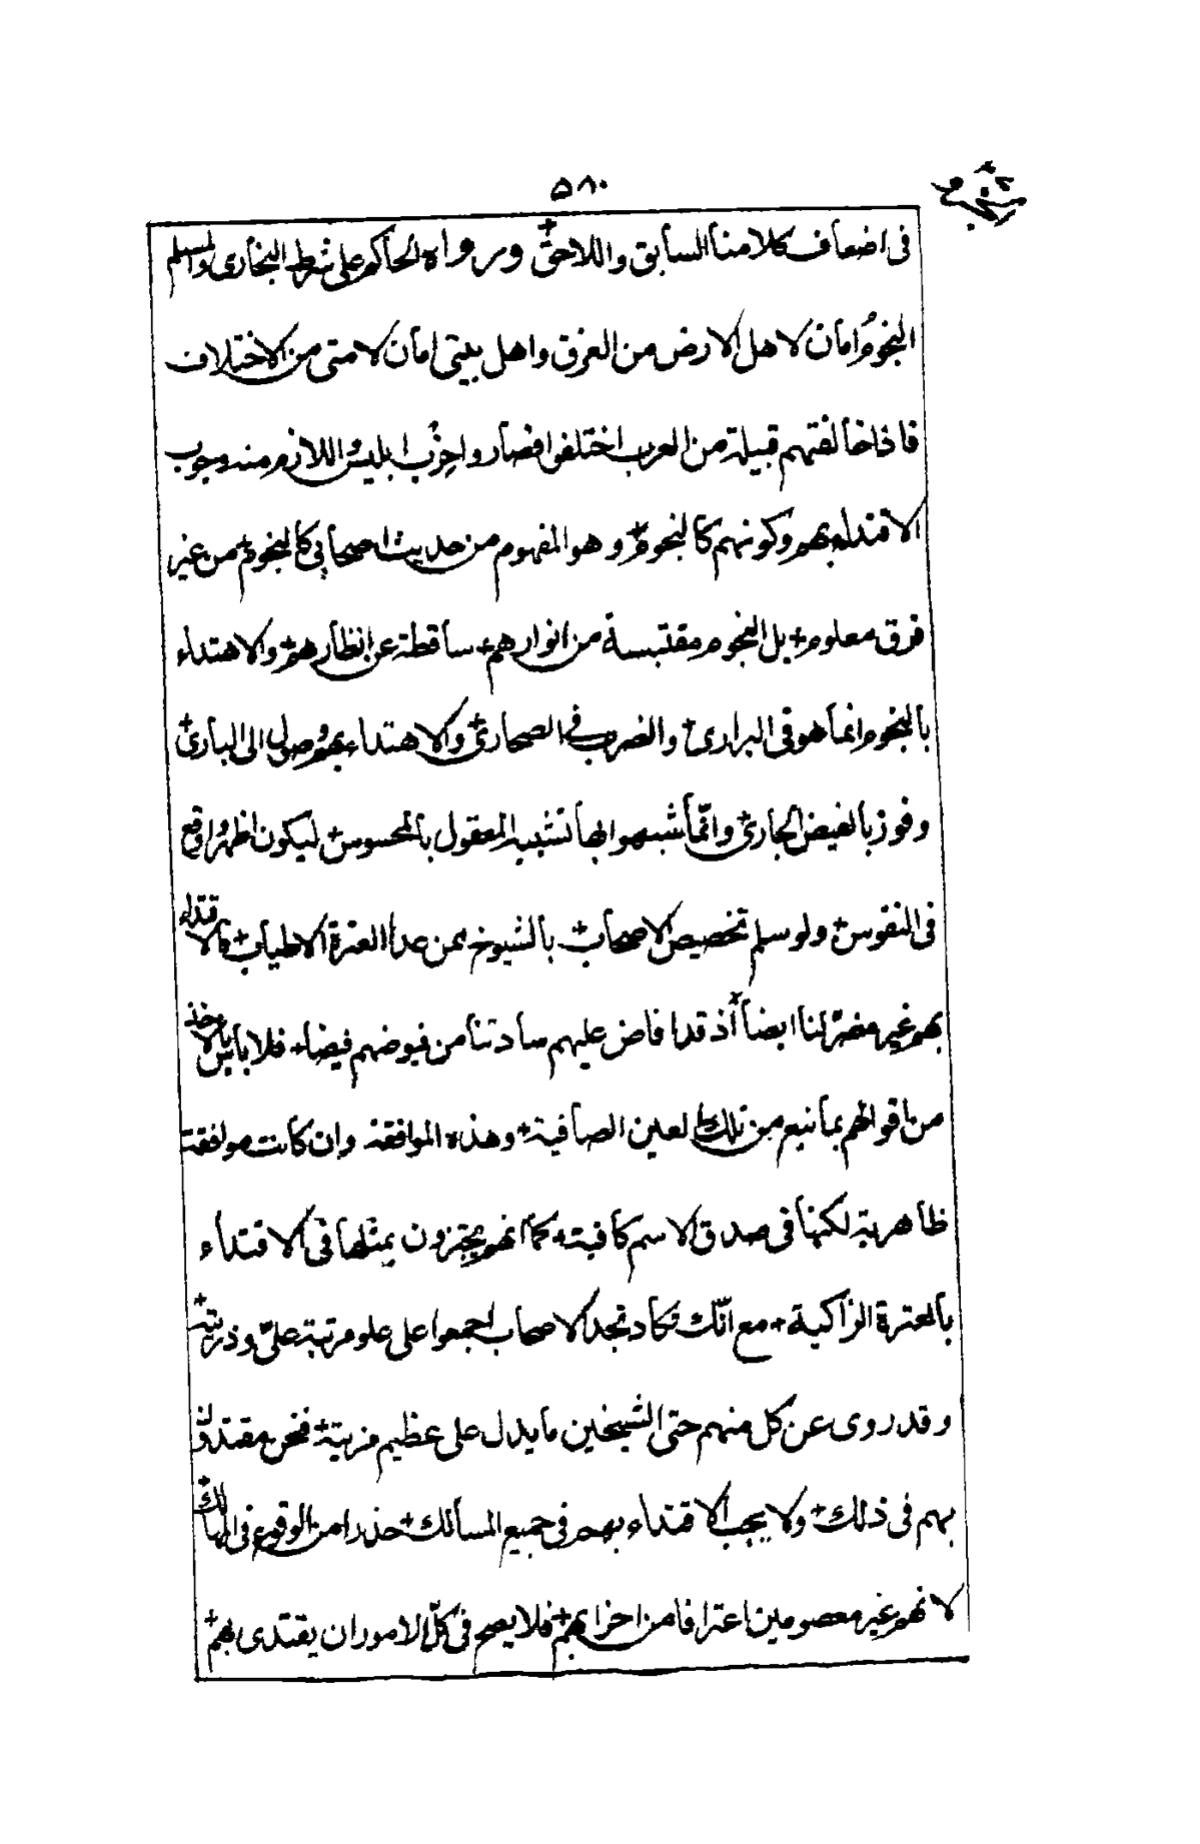 ۵۸۰
فى اضعاف كلامنا السابق واللاحق + ورواه الحاكم على شرط البخارى والمسلم
النجوم امان لاهل الارض من الغرق واهل بيتى امان لامتى من الاختلاف
فاذا خالفتهم قبيلة من العرب اختلفوا فصاروا حزب ابليس واللازم منه وجوب
الاقتداء بهم وكونهم كالنجوم + وهو المفهوم من حديث اصحابى كالنجوم + من غير
فرق معلوم + بل النجوم مقتبسة من انوارهم + ساقطة عن انظارهم + والاهتداء
بالنجوم انما هو فى البرارى + والضرب فى الصحارى + والاهتداء بهم وصول الى البارى +
وفوز بالفيض الجارى + وانّما شبهوا بها تشبيه المعقول بالمحسوس + ليكون اظهر واوقع
فى النفوس + ولو سلم تخصيص الاصحاب + بالشيوخ بمن عدا العترة الاطياب + فالاقتداء
بهم غير مضرّ لنا ايضا + اذ قد افاض عليهم ساداتنا من فيوضهم فيضا + فلا باس بالاخذ
من اقوالهم بما نبع من تلك العين الصافية + وهذه الموافقة وان كانت موافقة
ظاهرية لكنها فى صدق الاسم كافية + كما انهم يجتزون بمثلها فى الاقتداء
بالعترة الزاكية + مع انّك تكاد تجد الاصحاب اجمعوا على علو مرتبة علىّ وذريته +
وقد روى عن كل منهم حتى الشيخين ما يدل على عظيم مزيته + فنحن مقتدون
بهم فى ذلك + ولا يجب الاقتداء بهم فى جميع المسالك + حذرا من الوقوع فى المهالك +
لانهم غير معصومين اعترافا من احزابهم + فلا يصح فى كلّ الامور ان يقتدى بهم +